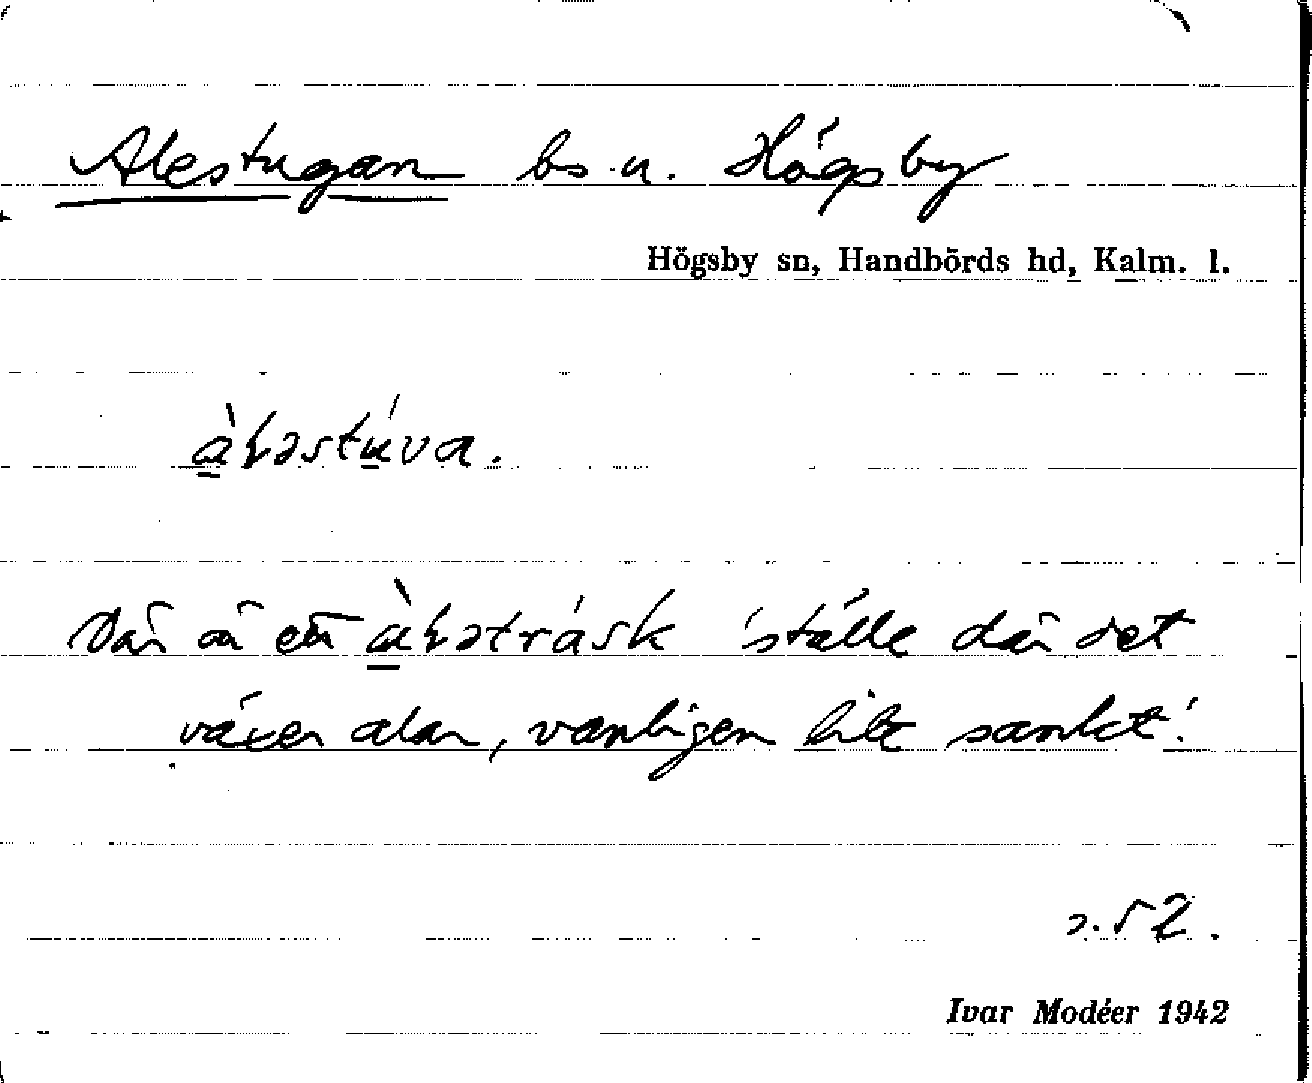 Alestugan bs. u. Högsby
Högsby sn, Handbörds hd, Kalm. l.
àḷəstúva.
Där är ett àḷəträsk 'ställe där det
växer alar, vanligen lite sankt'.
s. 52.
Ivar Modéer 1942